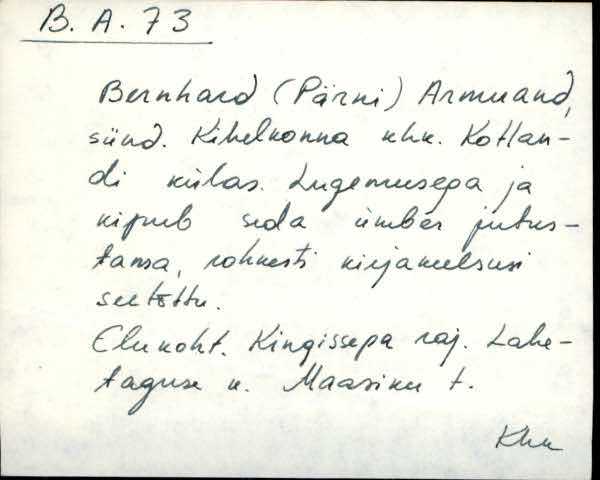 B. A. 73
Bernhard (Pärni) Armuand,
sünd. Kihelkonna khk. Kotlan-
di külas. Lugemusega ja
kipub seda ümber jutus-
tama, rohkesti kirjakeelsusi
seetõttu.
Elukoht. Kingissepa raj. Lahe-
taguse k. Maasiku t.
Khk